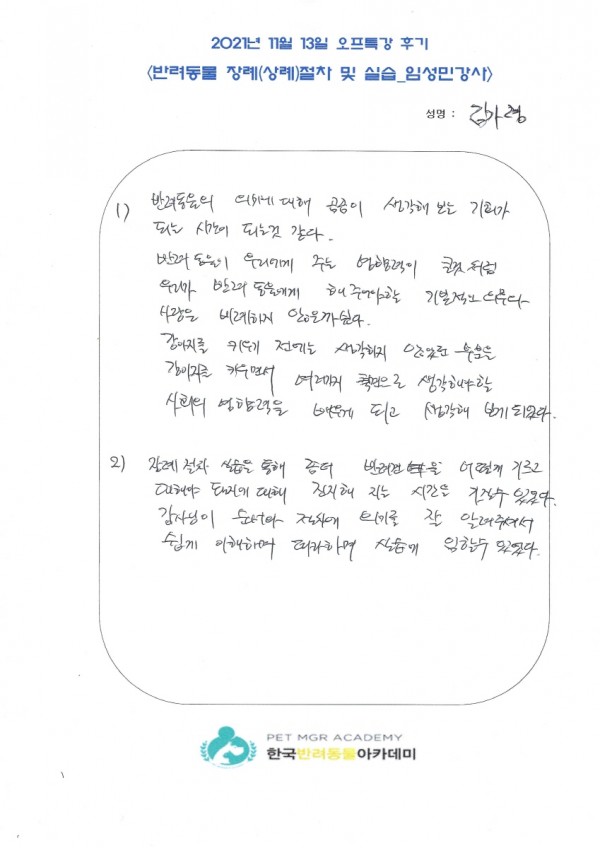 2021년 11월 13일 오프특강 후기
<반려동물 장례(상례)절차 및 실습_임성민강사>
성명 : 김가령
1) 반려동물의 의미에 대해 곰곰이 생각해 보는 기회가
되는 시간이 되는것 같다.
반려 동물이 우리에게 주는 영향력이 큰것 처럼
우리가 반려 동물에게 해 주어야할 기본적인 의무와
사랑은 비례하지 않을까싶다.
강아지를 키우기 전에는 생각하지 않았던 부분을
강아지를 키우면서 여러가지 측면으로 생각해야할
사회의 영향력을 배우게 되고 생각해 보게 되었다.
2) 장례 절차 실습을 통해 좀더 반려견 을 어떻게 기르고
대해야 되는지에 대해 진지해 지는 시간을 가질수 있었다.
강사님이 순서와 절차에 의미를 잘 알려주셔서
쉽게 이해하며 따라하며 실습에 임할수 있었다.
PET MGR ACADEMY
한국반려동물아카데미